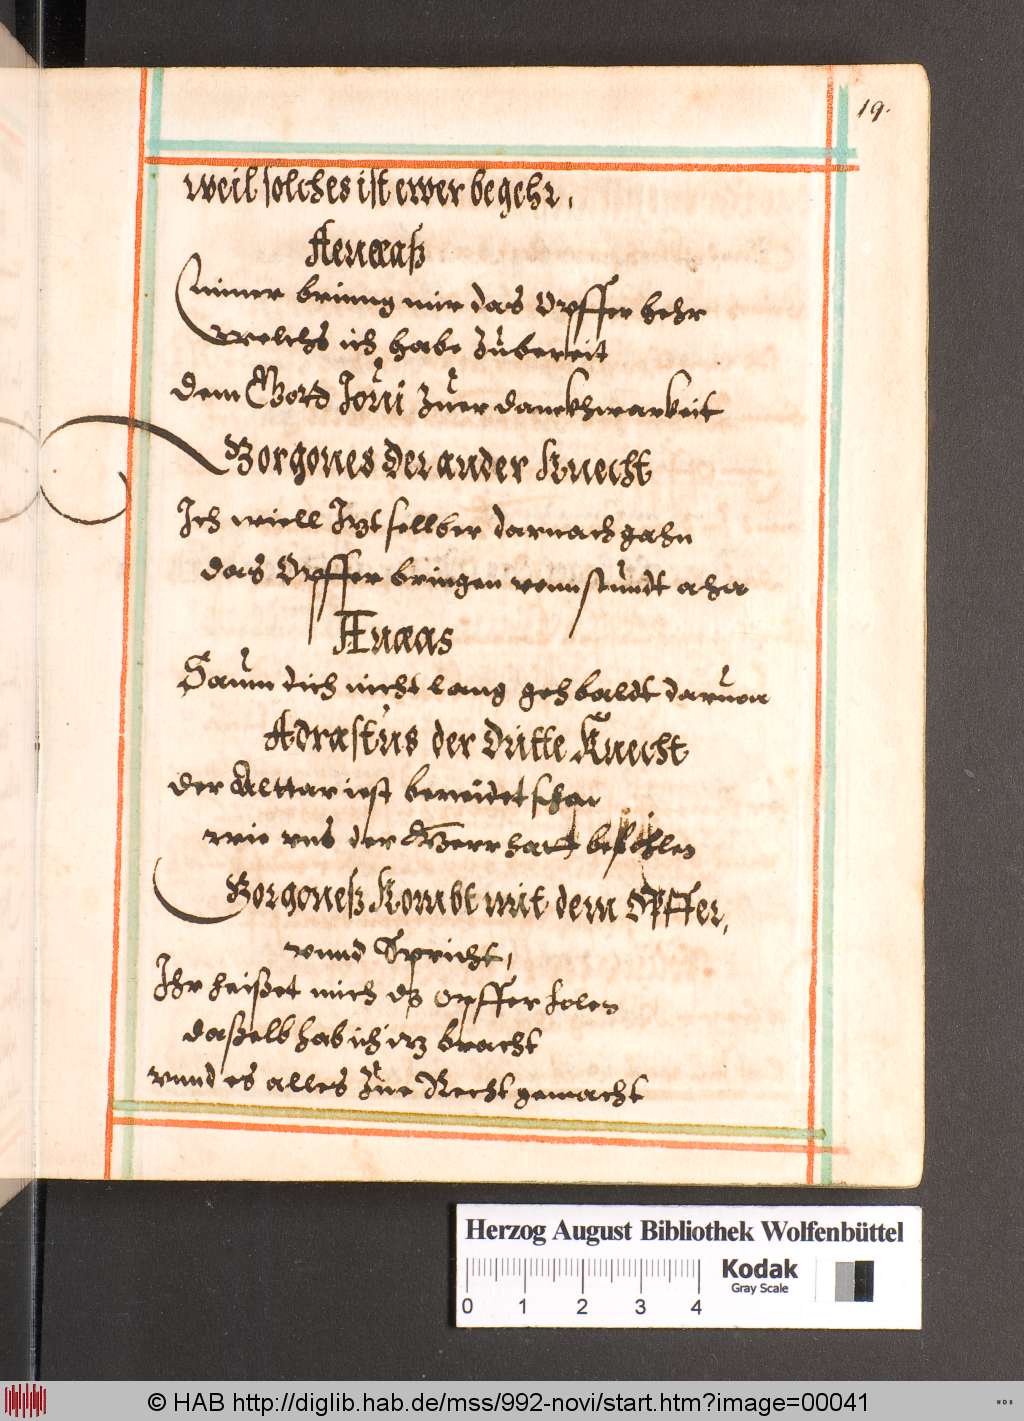 19.
weil solches ist ewer begehr,
Aeneaß
Einer brinng mir das Opffer hehr
welchs ich habe zúbereit
dem Gott Joúi zúer danckhwarkeit
Gorgones der ander Knecht
Ich wiell Izt sellber darnach gahn
das Opffer bringen vonn stúndt ahn
Æneas
Saúm dich nicht lang geh baldt daruon
Adrastús der Dritte Knecht
der Alttar ist bereidet schon
wie vns der Herr hatt befohlen
Gorgoneß Kombt mit dem Opffer,
vnnd Spricht,
Ihr heißet mich dz opffer holen
daßelb hab ich itz bracht
vnnd es alles zúe Recht gemacht
Herzog August Bibliothek Wolfenbüttel
Kodak
Gray Scale
0 1 2 3 4
© HAB http://diglib.hab.de/mss/992-novi/start.htm?image=00041